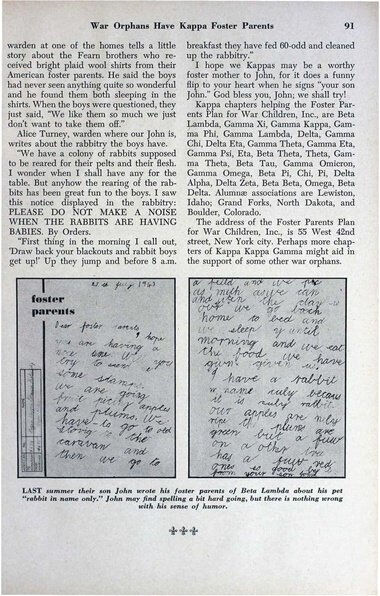 War Orphans Have Kappa Foster Parents 91
warden at one of the homes tells a little
story about the Fearn brothers who re-
ceived bright plaid wool shirts from their
American foster parents. He said the boys
had never seen anything quite so wonderful
and he found them both sleeping in the
shirts. When the boys were questioned, they
just said, "We like them so much we just
don't want to take them off."
Alice Turney, warden where our John is,
writes about the rabbitry the boys have.
"We have a colony of rabbits supposed
to be reared for their pelts and their flesh.
I wonder when I shall have any for the
table. But anyhow the rearing of the rab-
bits has been great fun to the boys. I saw
this notice displayed in the rabbitry:
PLEASE DO NOT MAKE A NOISE
WHEN THE RABBITS ARE HAVING
BABIES. By Orders.
"First thing in the morning I call out,
'Draw back your blackouts and rabbit boys
get up!' Up they jump and before 8 a.m.
breakfast they have fed 60-odd and cleaned
up the rabbitry."
I hope we Kappas may be a worthy
foster mother to John, for it does a funny
flip to your heart when he signs "your son
John." God bless you, John; we shall try!
Kappa chapters helping the Foster Par-
ents Plan for War Children, Inc., are Beta
Lambda, Gamma Xi, Gamma Kappa, Gam-
ma Phi, Gamma Lambda, Delta, Gamma
Chi, Delta Eta, Gamma Theta, Gamma Eta,
Gamma Psi, Eta, Beta Theta, Theta, Gam-
ma Theta, Beta Tau, Gamma Omicron,
Gamma Omega, Beta Pi, Chi, Pi, Delta
Alpha, Delta Zeta, Beta Beta, Omega, Beta
Delta. Alumnæ associations are Lewiston,
Idaho; Grand Forks, North Dakota, and
Boulder, Colorado.
The address of the Foster Parents Plan
for War Children, Inc., is 55 West 42nd
street, New York city. Perhaps more chap-
ters of Kappa Kappa Gamma might aid in
the support of some other war orphans.
july 1943
foster
parents
Dear foster parents
I hope
you are having a
nice
to send you
some stamps.
we are going
fruit picking apples
and plums. We
have to go to old
the
caravan and
then we go to
a field and we
as much as we can
and when the day is
out we go back
home to bed and
we sleep until
morning and we eat
the food we have
given
I have a rabbit
name ruby because
it is ruby rabbit
our apples are nly
ripe the plums are
green but a fuw
on a other tree
has a fuw red
ones so good by
from your son John
LAST summer their son John wrote his foster parents of Beta Lambda about his pet
"rabbit in name only." John may find spelling a bit hard going, but there is nothing wrong
with his sense of humor.